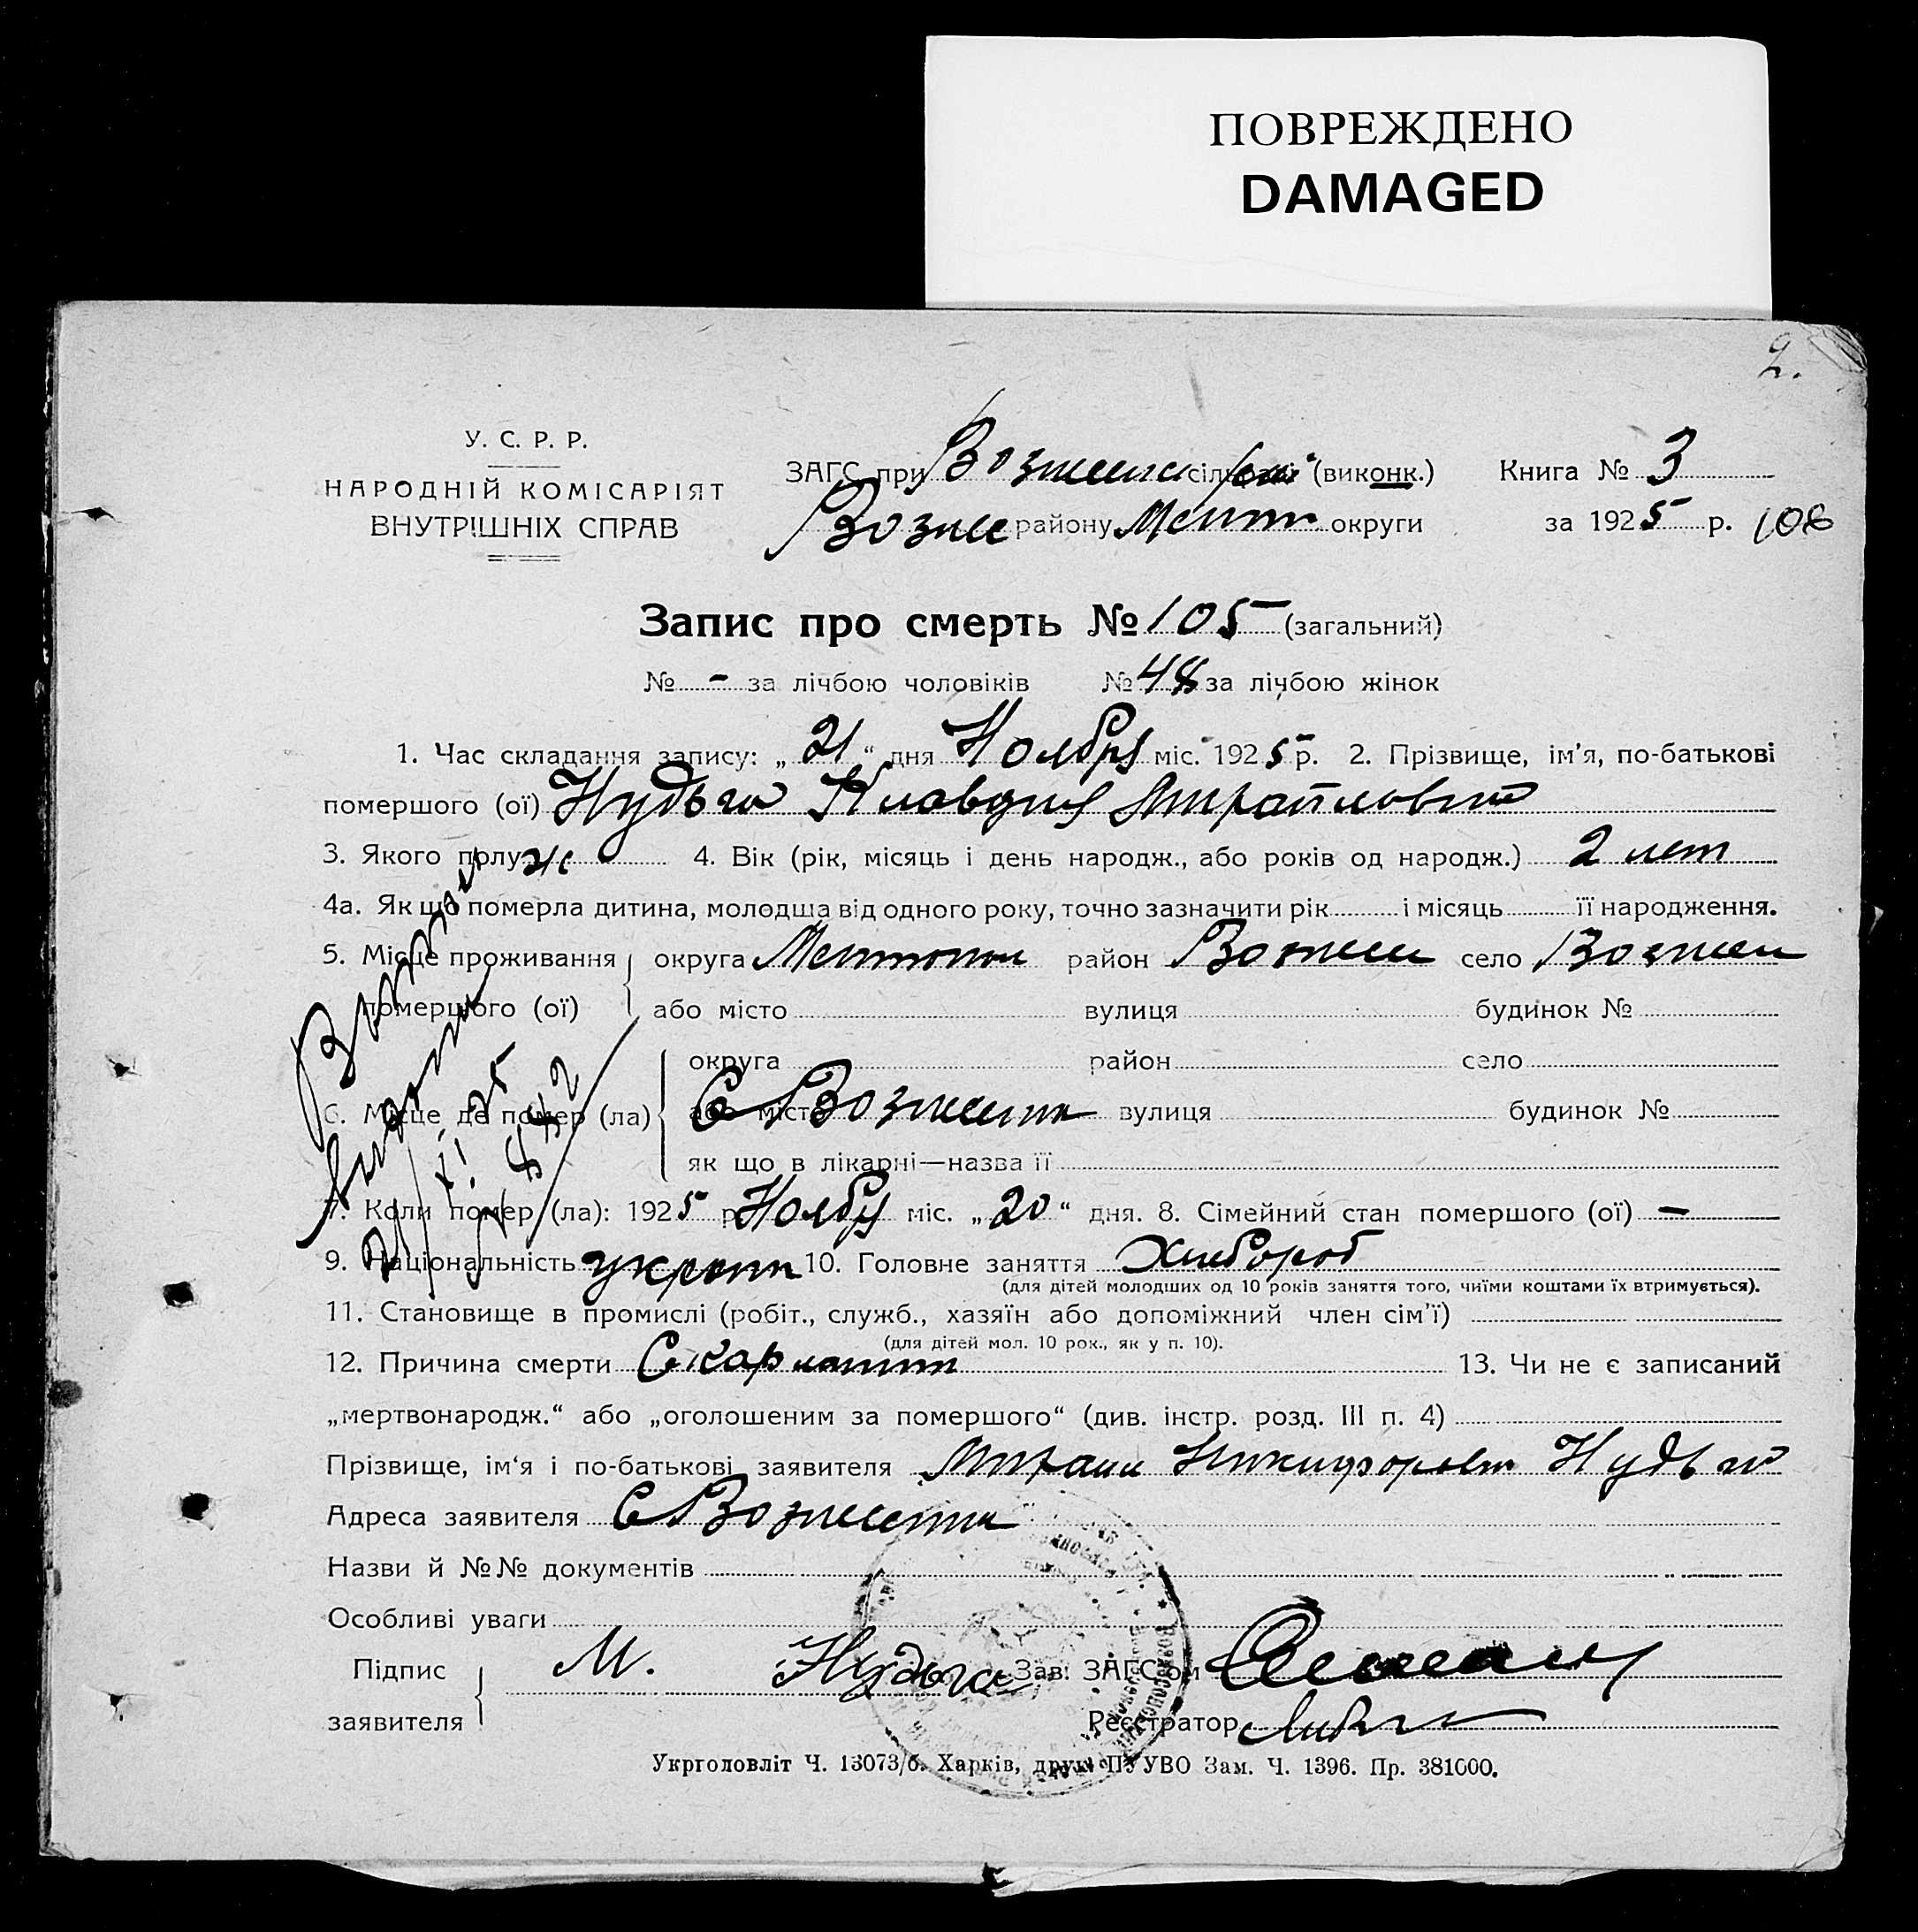 ПОВРЕЖДЕНО
DAMAGED
2.
У. С. Р. Р.
НАРОДНІЙ КОМІСАРІЯТ
ВНУТРІШНІХ СПРАВ
ЗАГС при (виконк.) Книга № 3
Возне району Мелит округи за 1925 р. 108
Запис про смерть № 105 (загальний)
№ - за лічбою чоловіків № 48 за лічбою жінок
1. Час складання запису: „ 21 “ дня Ноября міс. 1925 р. 2. Прізвище, ім'я, по-батькові
помершого (ої) Нудьга Клавдия Михайловна
3. Якого полу ж 4. Вік (рік, місяць і день народж., або років од народж.) 2 лет
4а. Як що померла дитина, молодша від одного року, точно зазначити рік і місяць її народження.
5. Місце проживання округа Мелитопол район Вознес село Вознесен
помершого (ої) або місто вулиця будинок №
округа район село
6. Місце де помер (ла) або місто С Вознесенка вулиця будинок №
як що в лікарні—назва її
7. Коли помер (ла): 1925 р. Ноябр міс. „ 20 “ дня. 8. Сімейний стан помершого (ої) —
9. Національність украин 10. Головне заняття Хлебороб
(для дітей молодших од 10 років заняття того, чиїми коштами їх втримується).
11. Становище в промислі (робіт., служб., хазяїн або допоміжний член сім'ї)
(для дітей мол. 10 рок., як у п. 10).
12. Причина смерти Скарлатин 13. Чи не є записаний
„мертвонародж.“ або „оголошеним за помершого“ (див. інстр. розд. III п. 4)
Прізвище, ім'я і по-батькові заявителя Михаил Никифорович Нудьга
Адреса заявителя С Вознесенка
Назви й №№ документів
Особливі уваги
Підпис М. Нудьга Зав. ЗАГС'ом
заявителя Реєстратор
Укрголовліт Ч. 13073/б. Харків, друк. ПУУВО Зам. Ч. 1396. Пр. 381000.